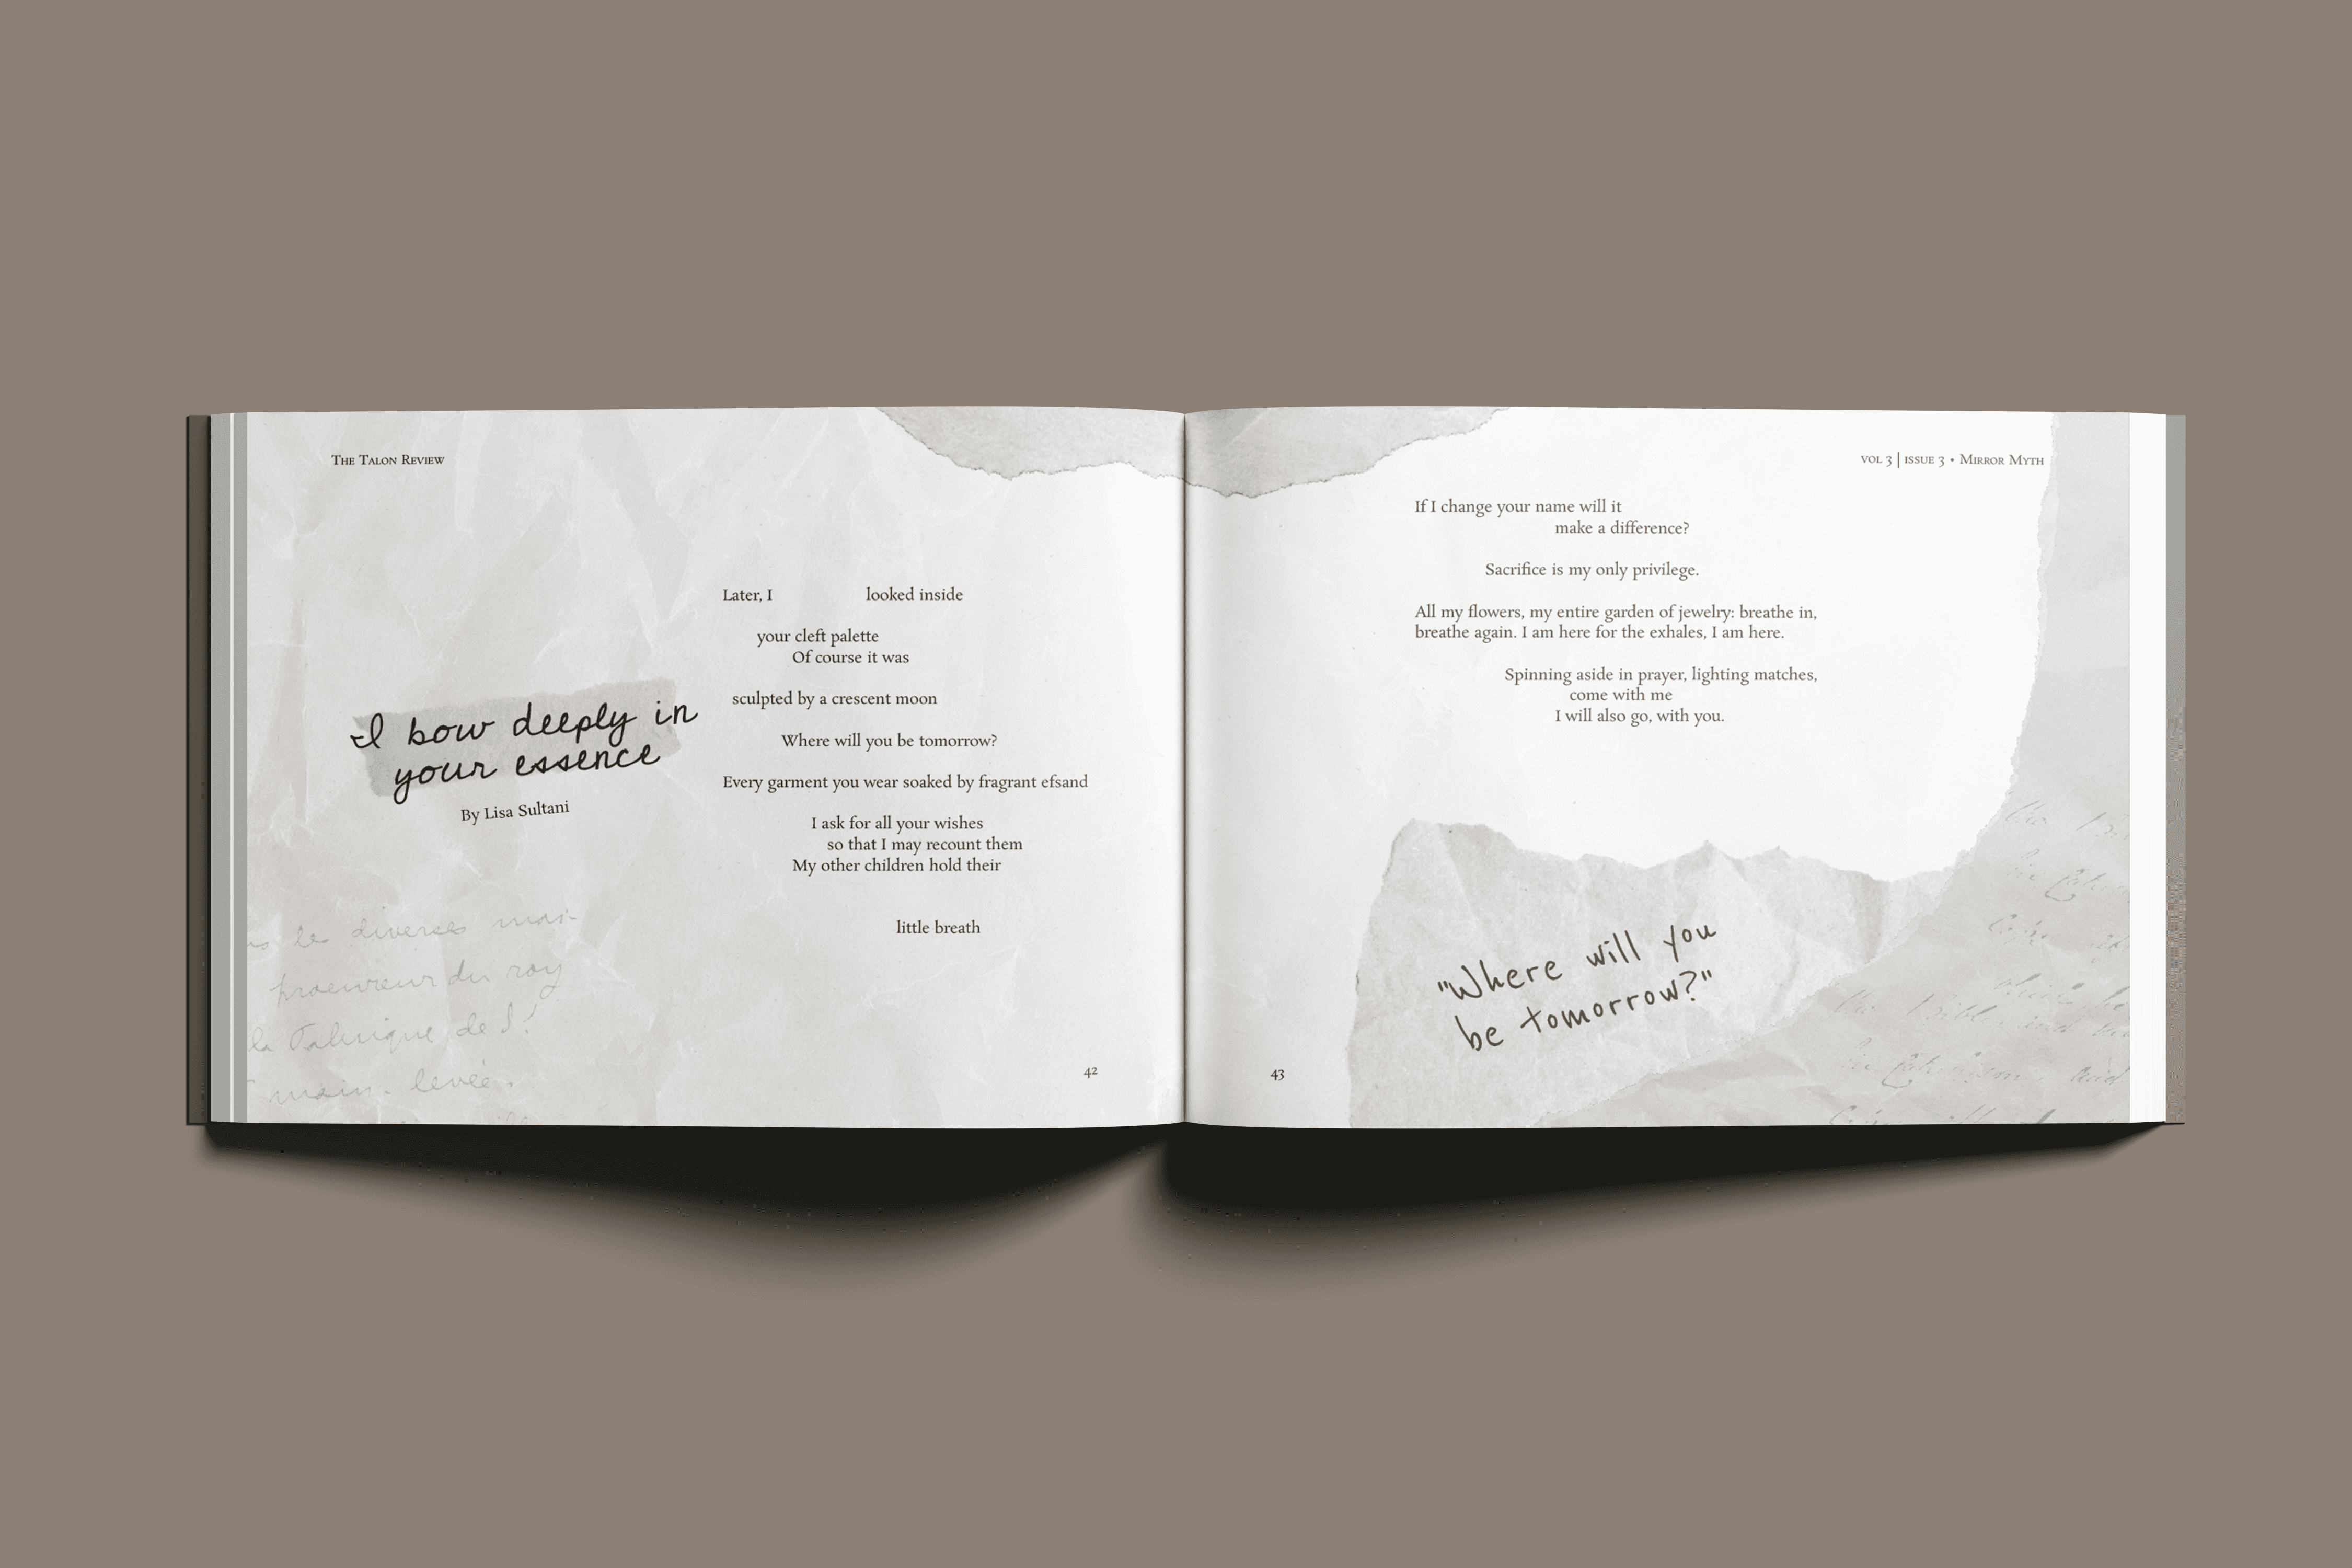 The Talon Review
I bow deeply in
your essence
By Lisa Sultani
Later, I looked inside
your cleft palette
Of course it was
sculpted by a crescent moon
Where will you be tomorrow?
Every garment you wear soaked by fragrant efsand
I ask for all your wishes
so that I may recount them
My other children hold their
little breath
de diverses
procureur du roy
la Fabrique de
main levée
42
vol 3 | issue 3 • Mirror Myth
If I change your name will it
make a difference?
Sacrifice is my only privilege.
All my flowers, my entire garden of jewelry: breathe in,
breathe again. I am here for the exhales, I am here.
Spinning aside in prayer, lighting matches,
come with me
I will also go, with you.
"Where will you
be tomorrow?"
43